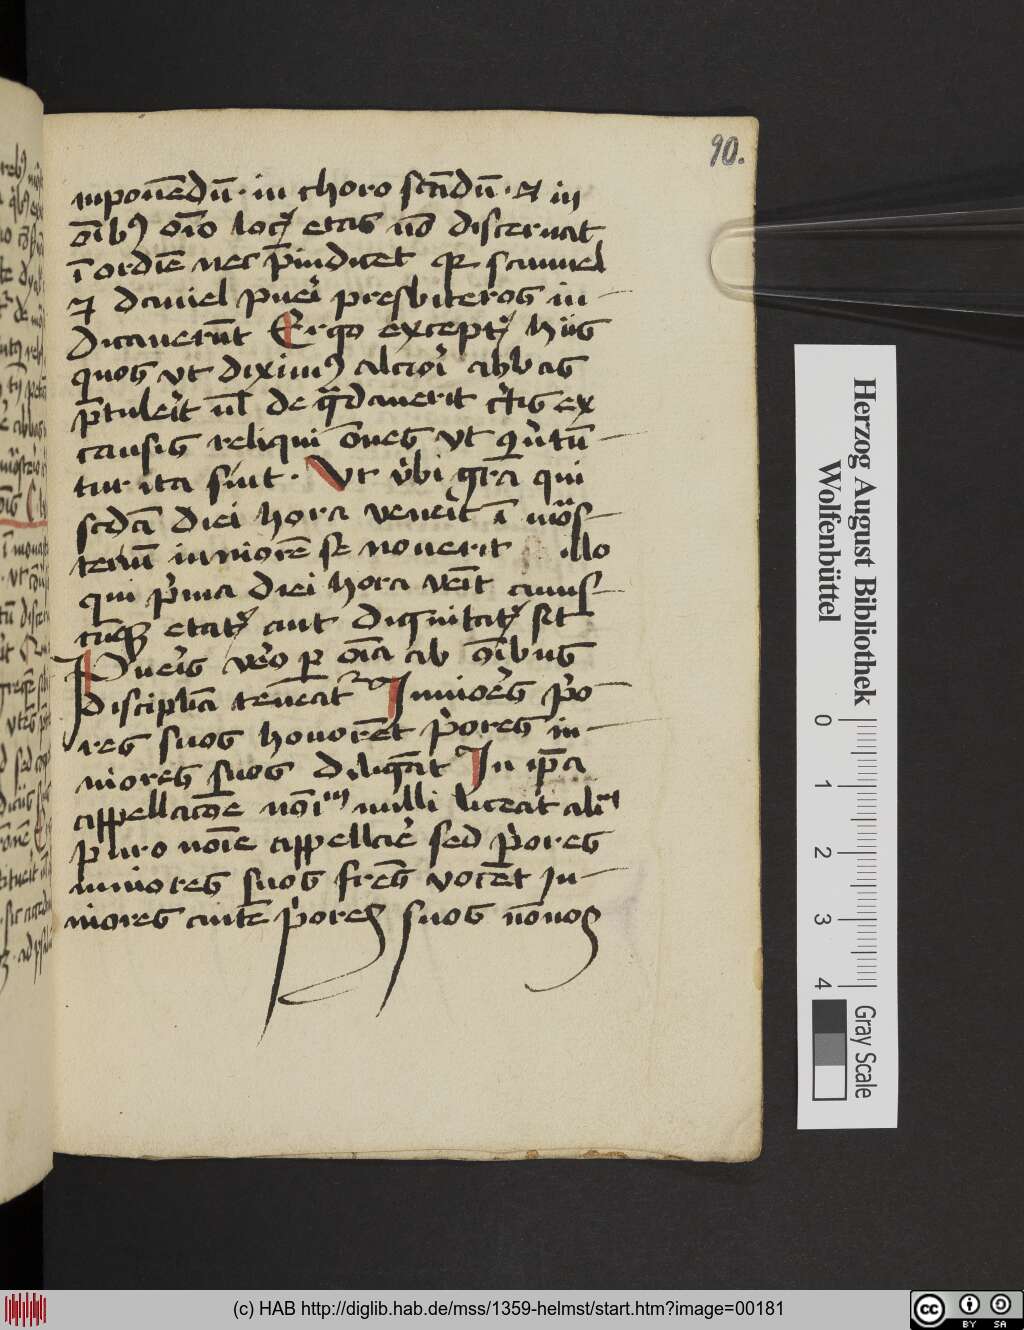 90.
inponēdū · in choro stādū · et in
oībꝫ oīo locꝭ etas nō discernat
ī ordīe nec p̄iudicet qꝛ samuel
⁊ daniel pueri presbiteros iu-
dicauerūt Ergo exceptꝭ hijs
quos vt diximꝰ alciori abbas
p̄tulerit vl̄ de gͣdauerit c̄tis ex
causis reliqui om̄es vt ꝯuertū-
tur ita sint · Vt vͥbi gr̄a qui
scdā diei hora venerit ī mōs-
teriū iuniorē se nouerit illo
qui pͥma diei hora venit cuius-
cūqꝫ etatꝭ aut dignitatꝭ sit
Pueris vero ꝑ oīa ab oībus
disciplīa teneat᷑ Iuniores pͥo-
res suos honorēt pͥores iu-
niores suos diligāt In ip̄a
appellacōe noīm nulli liceat aliū
puro noīe appellare sed pͥores
iuniores suos fr̄es vocēt Iu-
niores autē pͥores suos nōnos
Herzog August Bibliothek
Wolfenbüttel
0 1 2 3 4
Gray Scale
(c) HAB http://diglib.hab.de/mss/1359-helmst/start.htm?image=00181
cc BY SA